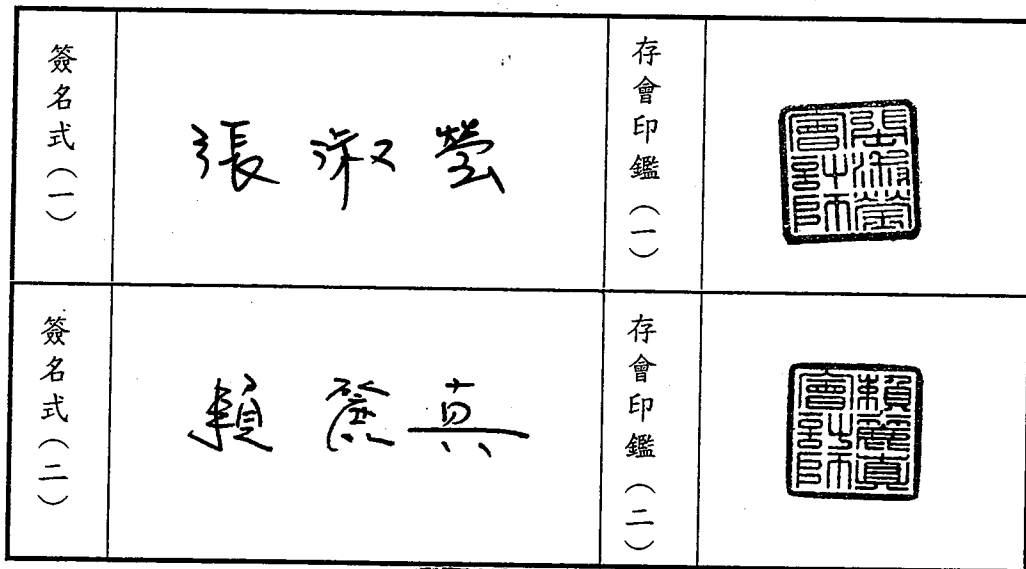 簽名式(一)
張淑瑩
存會印鑑(一)
張淑瑩
會計師
簽名式(二)
賴麗真
存會印鑑(二)
賴麗真
會計師